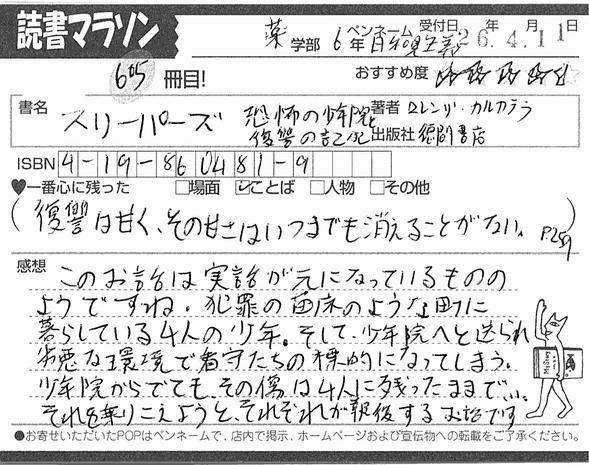 読書マラソン
605 冊目!
薬 学部 6年 ペンネーム 日和見主義 受付日 26年 4月 11日
おすすめ度 ☆☆☆☆☆
書名 スリーパーズ 恐怖の少年院と復讐の記憶
著者 ロレンツォ・カルカテラ
出版社 徳間書店
ISBN 4-19-860481-9
♥一番心に残った □場面 ☑ことば □人物 □その他
(復讐は甘く、その甘さはいつまでも消えることがない。 P.259)
感想
このお話は実話が元になっているものの
ようですね。犯罪の苗床のような町に
暮らしている4人の少年。そして、少年院へと送られ
劣悪な環境で看守たちの標的になってしまう。
少年院からでても、その傷は4人に残ったままで…
それを乗りこえようと、それぞれが報復するお話です
●お寄せいただいたPOPはペンネームで、店内で掲示、ホームページおよび宣伝物への転載をご了承ください。